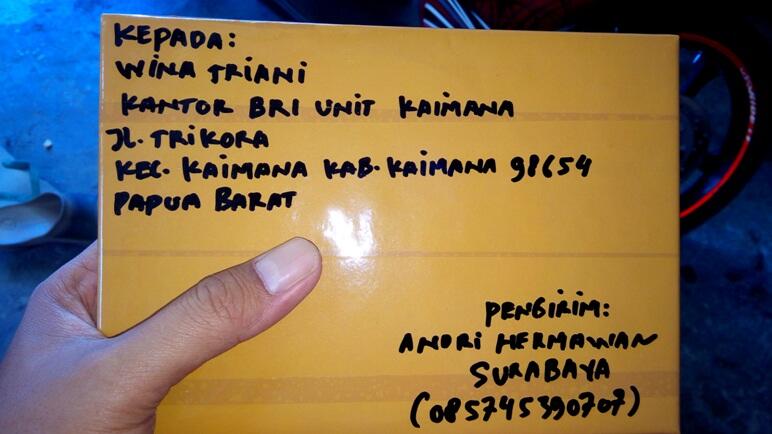 KEPADA:
WINA TRIANI
KANTOR BRI UNIT KAIMANA
JL. TRIKORA
KEC. KAIMANA KAB. KAIMANA 98654
PAPUA BARAT
PENGIRIM:
ANDRI HERMAWAN
SURABAYA
(085745390707)